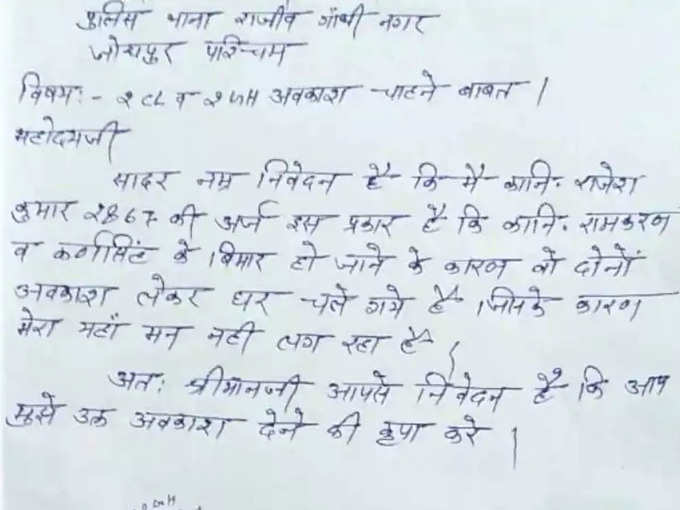 पुलिस थाना राजीव गाँधी नगर
जोधपुर पश्चिम
विषय:- 2 CL व 2 GH अवकाश चाहने बाबत।
महोदयजी
सादर नम्र निवेदन है कि मै कानि. राजेश
कुमार 2867 की अर्ज इस प्रकार है कि कानि. रामकरण
व कर्णसिंह के बिमार हो जाने के कारण वो दोनों
अवकाश लेकर घर चले गये है जिनके कारण
मेरा यहाँ मन नही लग रहा है।
अत: श्रीमानजी आपसे निवेदन है कि आप
मुझे उक्त अवकाश देने की कृपा करे।